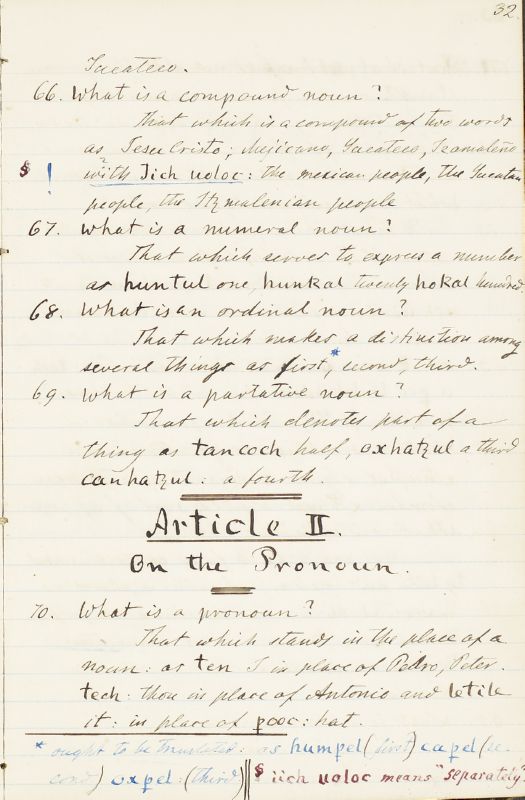 32.
Yucateco.
66. What is a compound noun?
That which is a compound of two words
as Jesu Cristo; Mejicano, Yucateco,
§ ! with Jich uoloc: the mexican people, the Yucatan
people, the Itzmalenian people
67. What is a numeral noun?
That which serves to express a number
as huntul one, hunkal twenty hokal hundred.
68. What is an ordinal noun?
That which makes a distinction among
several things as first,* second, third.
69. What is a partative noun?
That which denotes part of a
thing as tancoch half, oxhatzul a third
canhatzul: a fourth.
Article II.
On the Pronoun.
70. What is a pronoun?
That which stands in the place of a
noun: as ten I in place of Pedro, Peter.
tech: thou in place of Antonio and letile
it: in place of pooc: hat.
* ought to be translated: as humpel (first) capel (se-
cond) oxpel: (third) § iich uoloc means "separately"